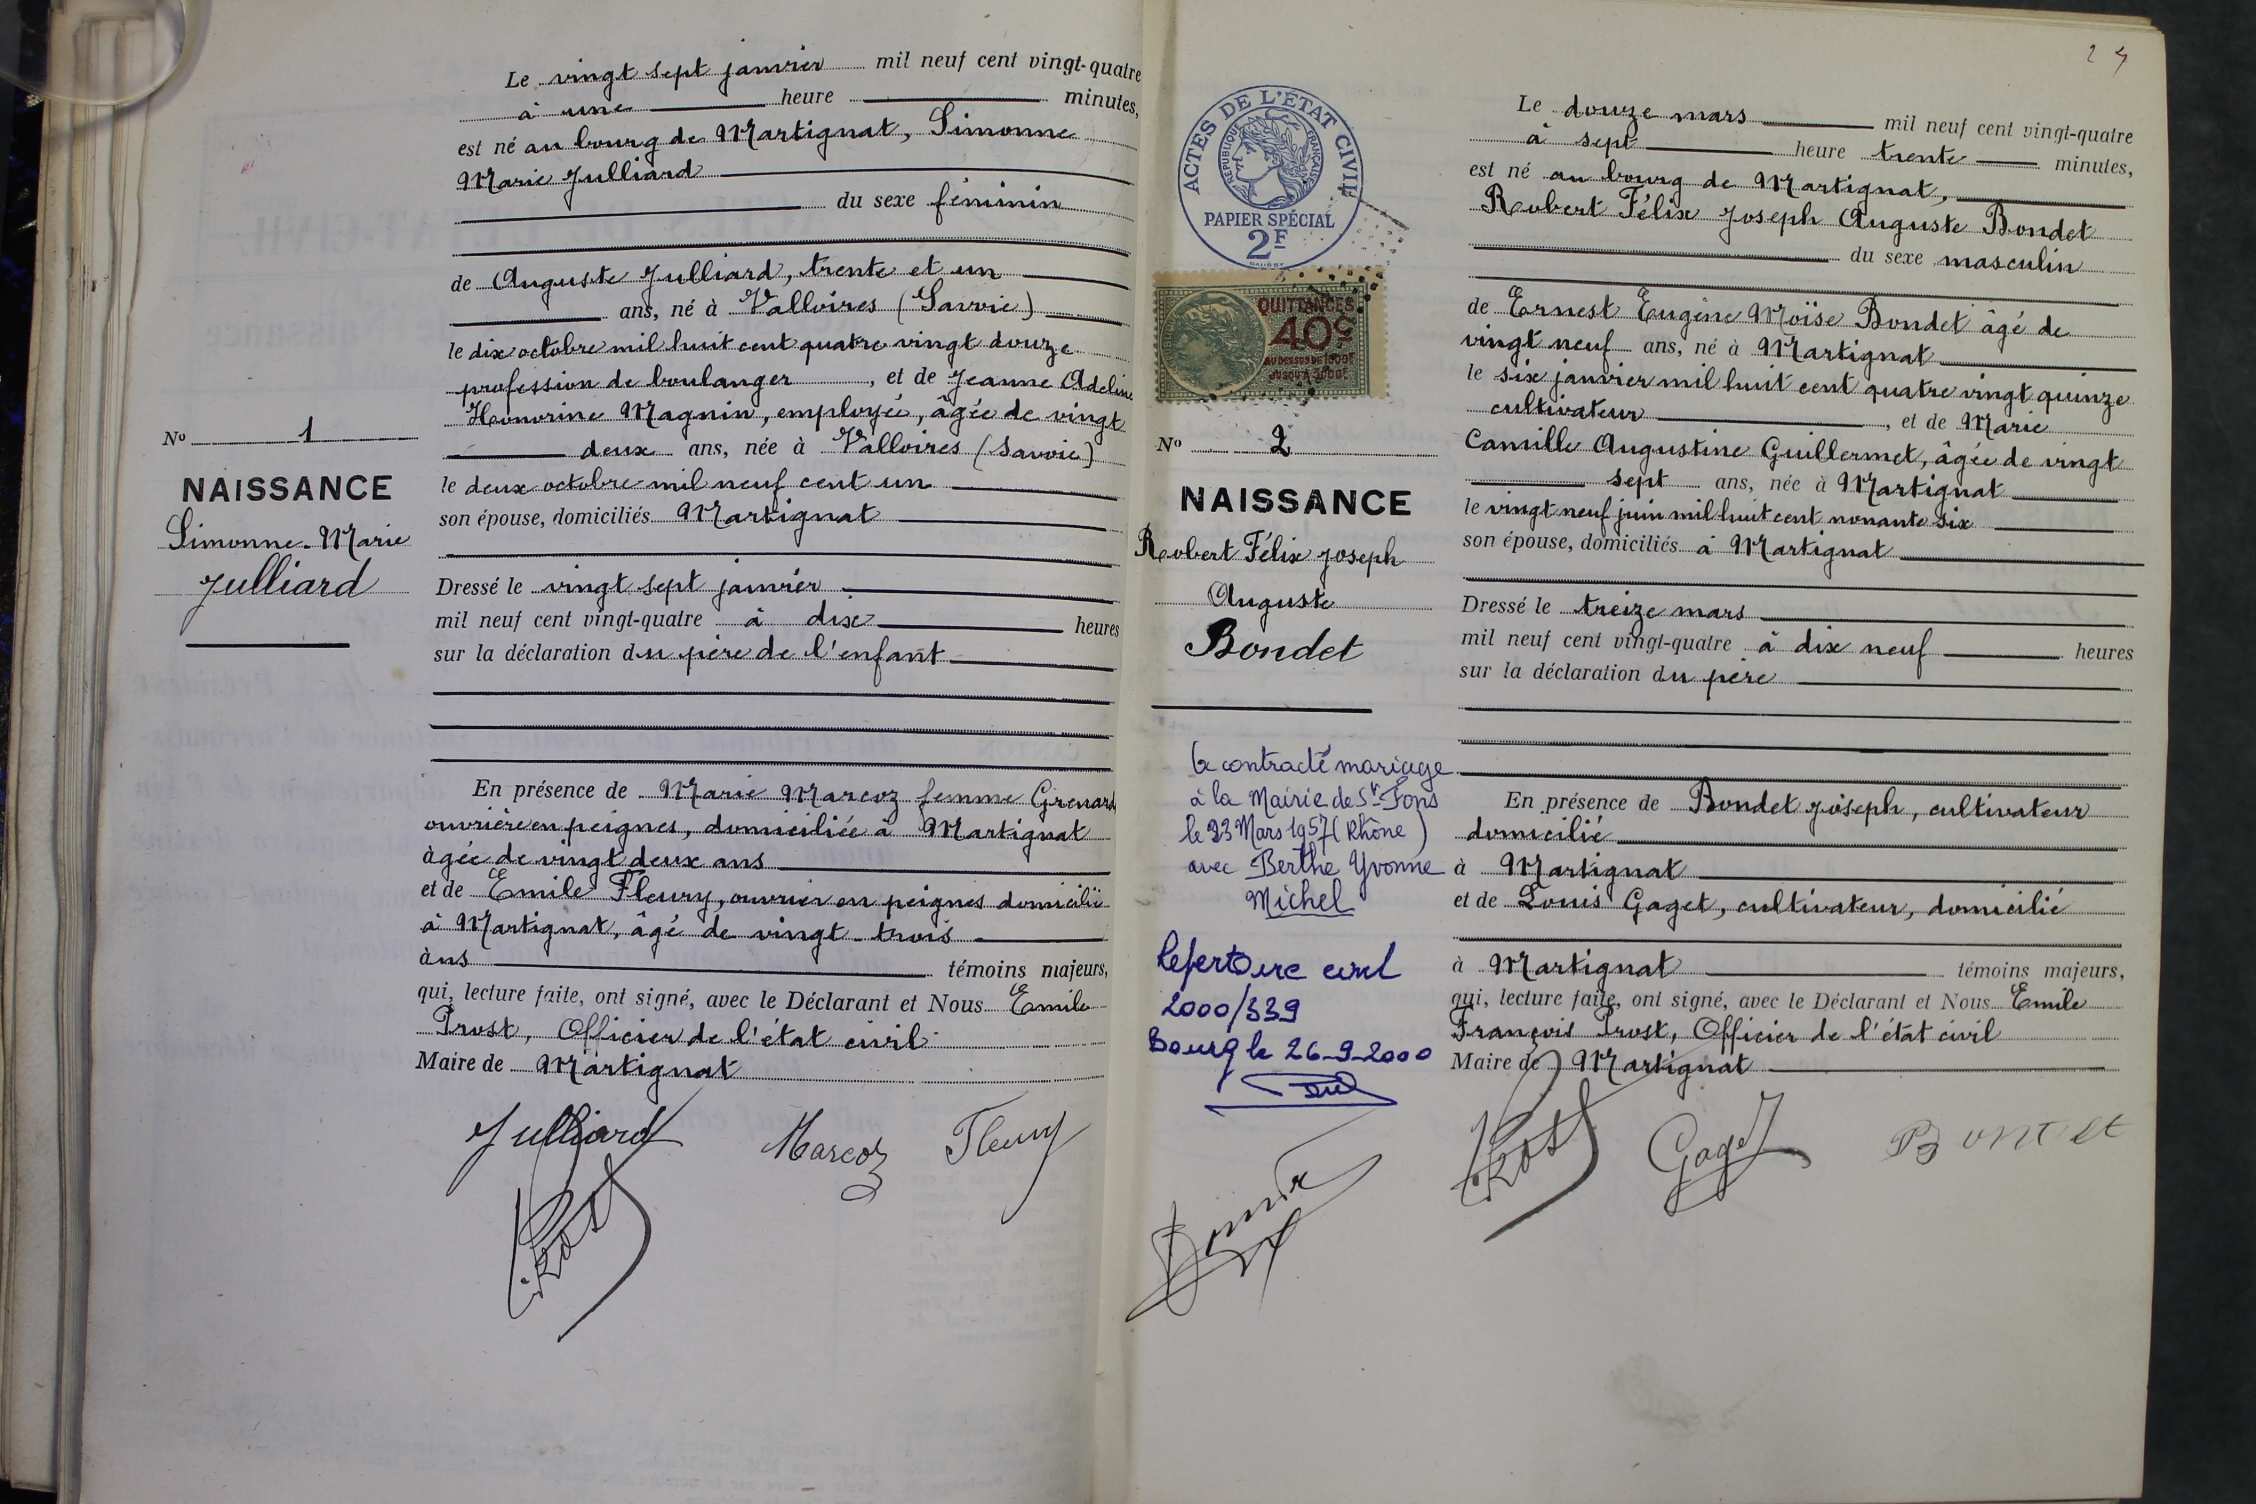 Le vingt sept janvier mil neuf cent vingt-quatre
à une heure minutes,
est né au bourg de Martignat, Simonne
Marie Julliard
du sexe féminin
de Auguste Julliard, trente et un
ans, né à Valloires (Savoie)
le dix octobre mil huit cent quatre vingt douze
profession de boulanger, et de Jeanne Adeline
Honorine Magnin, employée, âgée de vingt
deux ans, née à Valloires (Savoie)
le deux octobre mil neuf cent un
son épouse, domiciliés Martignat
Dressé le vingt sept janvier
mil neuf cent vingt-quatre à dix heures
sur la déclaration du père de l'enfant
En présence de Marie Marcoz femme Grenard
ouvrière en peignes, domiciliée à Martignat
âgée de vingt deux ans
et de Emile Fleury, ouvrier en peignes domicilié
à Martignat, âgé de vingt-trois
ans témoins majeurs,
qui, lecture faite, ont signé, avec le Déclarant et Nous Emile
Prost, Officier de l'état civil
Maire de Martignat
Julliard Marcoz Fleury
Prost
No 1
NAISSANCE
Simonne-Marie
Julliard
24
ACTES DE L'ÉTAT CIVIL
RÉPUBLIQUE FRANÇAISE
PAPIER SPÉCIAL
2F
QUITTANCES
40c
AU DESSUS DE 1000F
JUSQU'A 3000F
No 2
NAISSANCE
Robert Félix Joseph
Auguste
Bondet
a contracté mariage
à la Mairie de St-Fons
le 23 Mars 1957 (Rhône)
avec Berthe Yvonne
Michel
Répertoire civil
2000/339
Bourg le 26-9-2000
Le douze mars mil neuf cent vingt-quatre
à sept heure trente minutes,
est né au bourg de Martignat,
Robert Félix Joseph Auguste Bondet
du sexe masculin
de Ernest Eugène Moïse Bondet âgé de
vingt neuf ans, né à Martignat
le six janvier mil huit cent quatre vingt quinze
cultivateur, et de Marie
Camille Augustine Guillermet, âgée de vingt
sept ans, née à Martignat
le vingt neuf juin mil huit cent nonante six
son épouse, domiciliés à Martignat
Dressé le treize mars
mil neuf cent vingt-quatre à dix neuf heures
sur la déclaration du père
En présence de Bondet Joseph, cultivateur
domicilié
à Martignat
et de Louis Gaget, cultivateur, domicilié
à Martignat témoins majeurs,
qui, lecture faite, ont signé, avec le Déclarant et Nous Emile
François Prost, Officier de l'état civil
Maire de Martignat
Prost Gaget Bondet